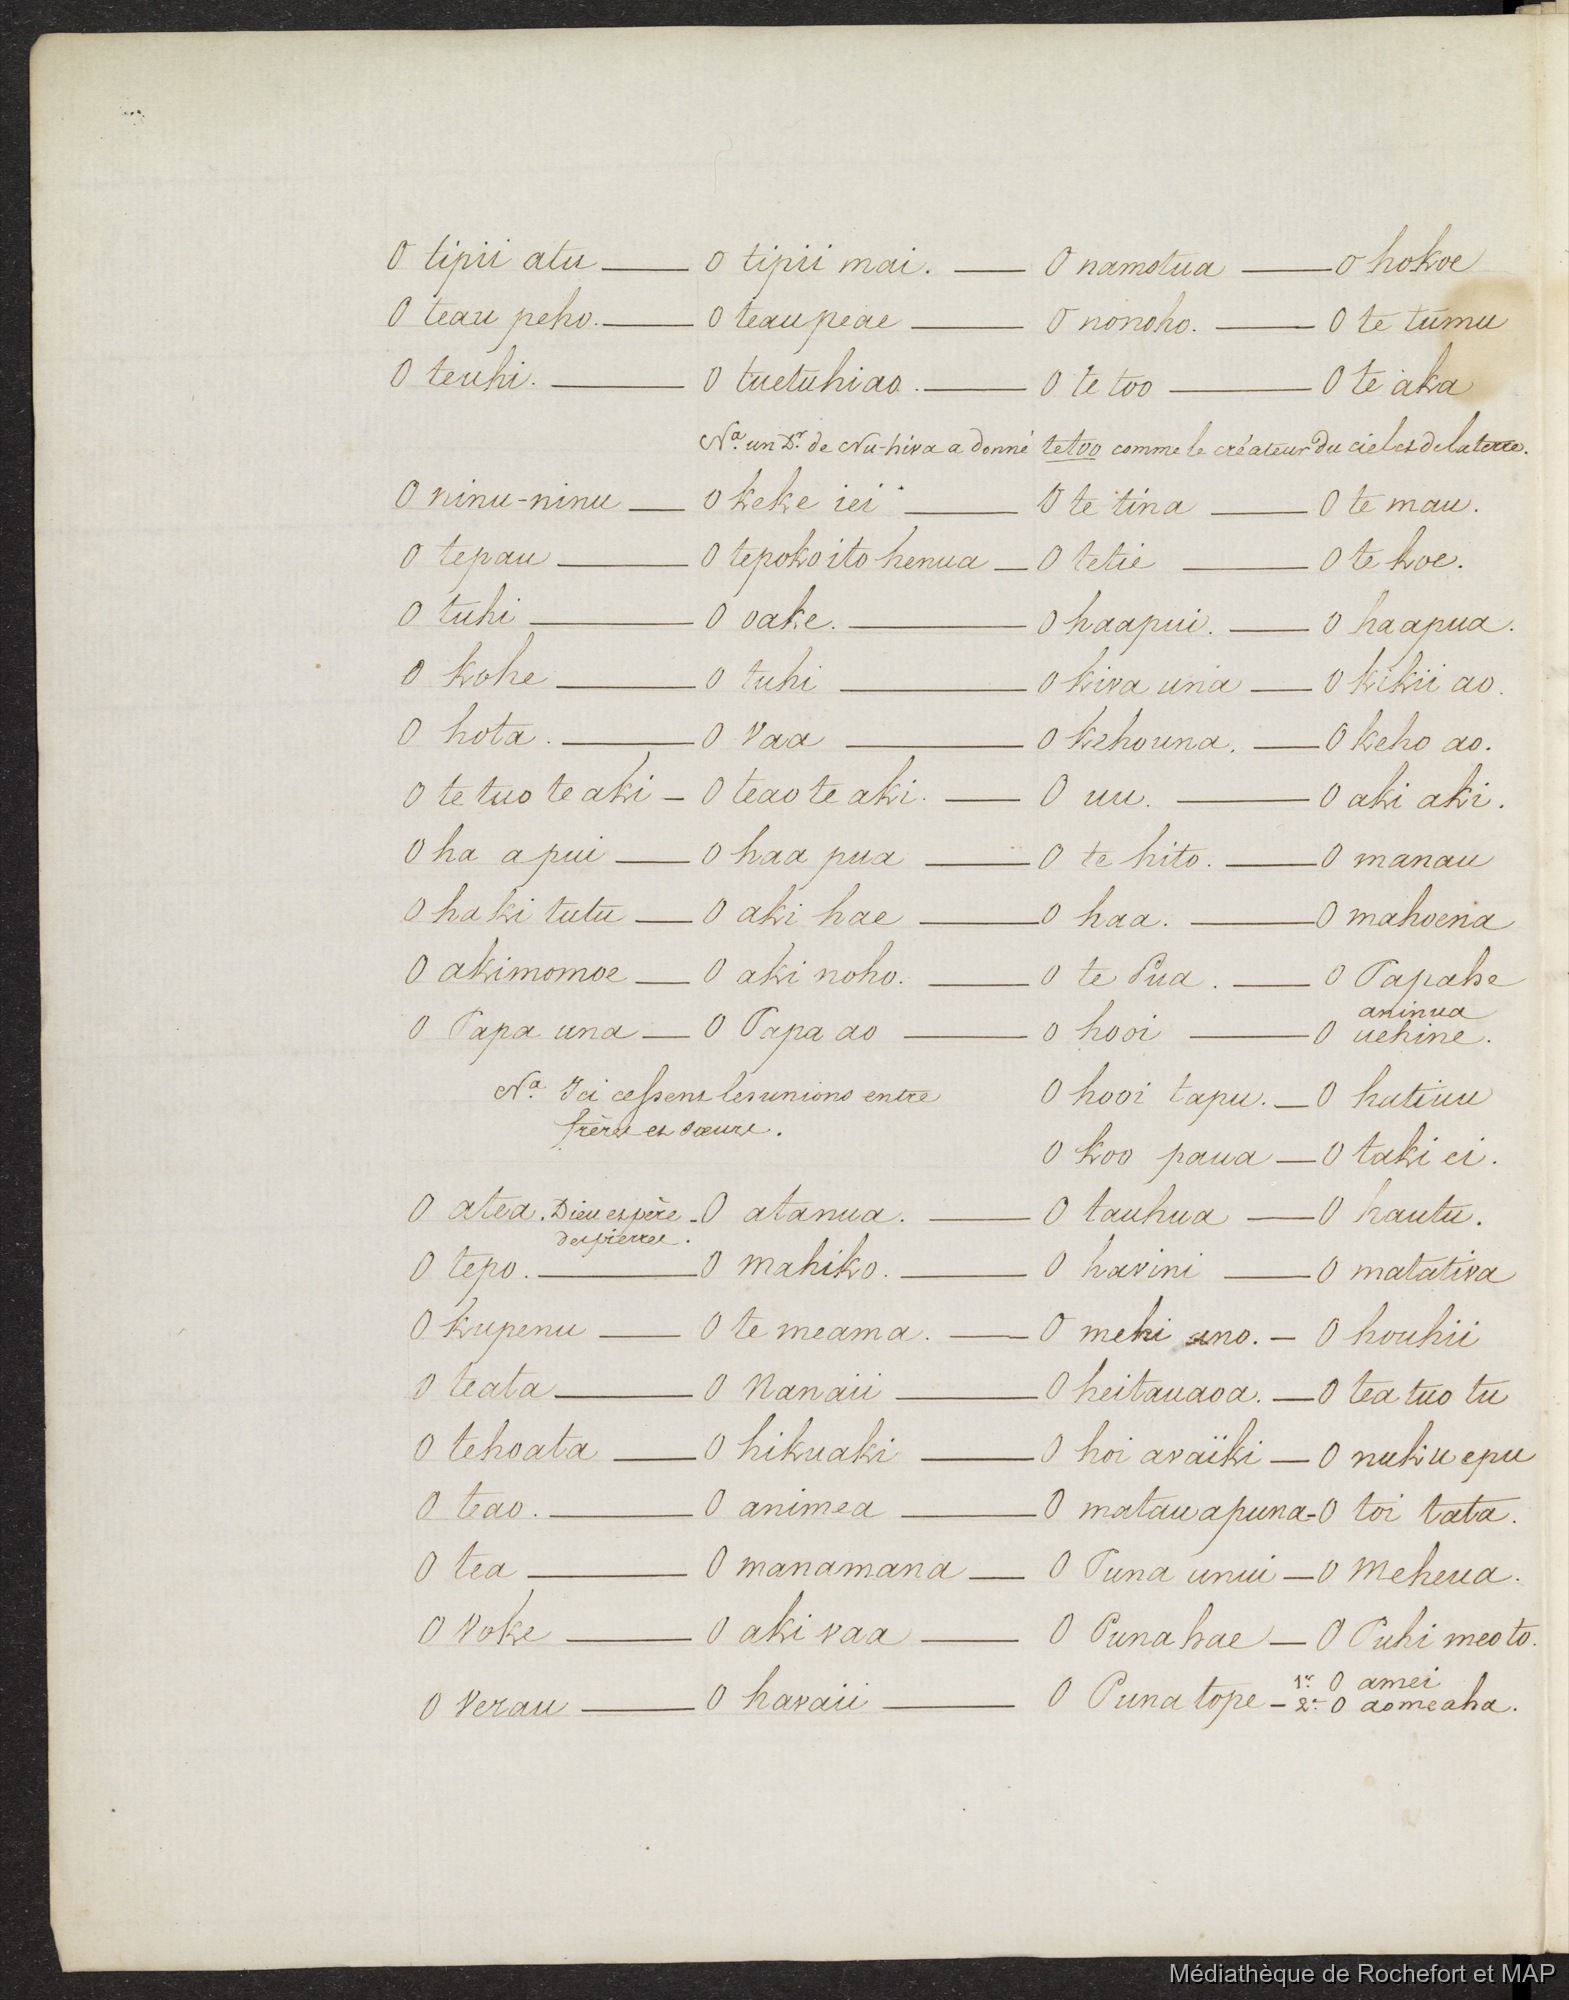 O tipii atu — O tipii mai. — O namotua — O hokoe
O teau peho. — O teau peae — O nonoho. — O te tumu
O teuhi. — O tuetuhiao. — O te too — O te aka
Nᵃ. un Dʳ. de Nu-hiva a donné tetoo comme le créateur du ciel et de la terre.
O ninu-ninu — O keke iei — O te tina — O te mau.
O tepau — O tepokoito henua — O tetie — O te koe.
O tuhi — O oake. — O haapui. — O haapua.
O kohe — O tuhi — O kiva una — O kikii ao.
O hota. — O vaa — O kehouna. — O keho ao.
O te tuo te aki — O teao te aki. — O uu. — O aki aki.
O ha apui — O haa pua — O te hito. — O manau
O haki tutu — O aki hae — O haa. — O mahoena
O akimomoe — O aki noho. — O te Pua. — O Papake
O Papa una — O Papa ao — O hooi — O aninua uehine.
Nᵃ. Ici cessent les unions entre O hooi tapu. — O hutiuu
frères et sœurs. O koo paua — O taki ei.
O atea. Dieu et père — O atanua. — O tauhua — O hautu.
des pierres.
O tepo. — O mahiko. — O havini — O matativa
O kupenu — O te meama. — O mehi uno. — O houhii
O teata — O Nanaii — O heitauaoa. — O tea tuo tu
O tehoata — O hikuaki — O hoi avaïki — O nuku epu
O teao. — O animea — O matau apuna - O toi tata.
O tea — O manamana — O Puna unui — O Meheua.
O voke — O aki vaa — O Puna hae — O Puhi meo to.
O Verau — O havaii — O Puna tope — 1ʳ O amei
2ᵉ. O aomeaha.
Médiathèque de Rochefort et MAP